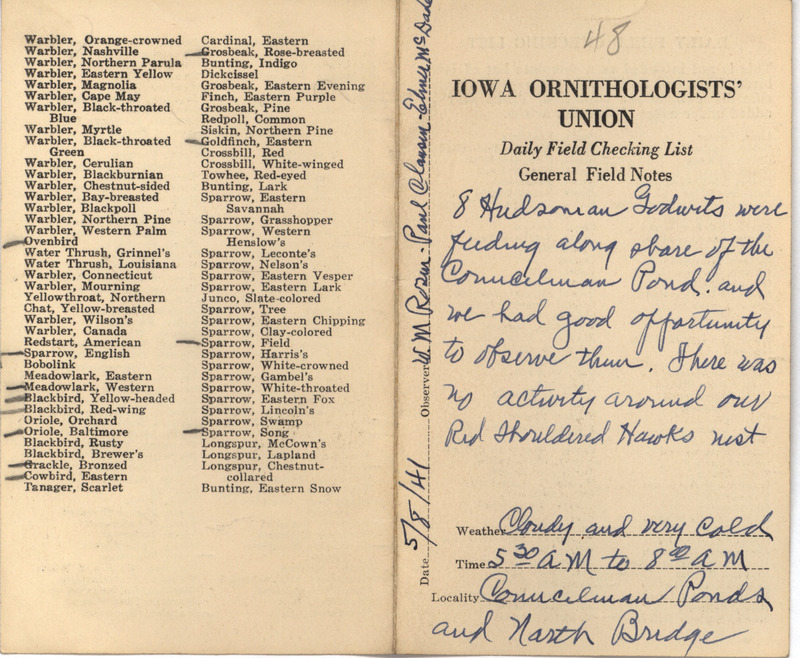 Warbler, Orange-crowned
Warbler, Nashville
Warbler, Northern Parula
Warbler, Eastern Yellow
Warbler, Magnolia
Warbler, Cape May
Warbler, Black-throated
Blue
Warbler, Myrtle
Warbler, Black-throated
Green
Warbler, Cerulian
Warbler, Blackburnian
Warbler, Chestnut-sided
Warbler, Bay-breasted
Warbler, Blackpoll
Warbler, Northern Pine
Warbler, Western Palm
Ovenbird
Water Thrush, Grinnel's
Water Thrush, Louisiana
Warbler, Connecticut
Warbler, Mourning
Yellowthroat, Northern
Chat, Yellow-breasted
Warbler, Wilson's
Warbler, Canada
Redstart, American
Sparrow, English
Bobolink
Meadowlark, Eastern
Meadowlark, Western
Blackbird, Yellow-headed
Blackbird, Red-wing
Oriole, Orchard
Oriole, Baltimore
Blackbird, Rusty
Blackbird, Brewer's
Grackle, Bronzed
Cowbird, Eastern
Tanager, Scarlet
Cardinal, Eastern
Grosbeak, Rose-breasted
Bunting, Indigo
Dickcissel
Grosbeak, Eastern Evening
Finch, Eastern Purple
Grosbeak, Pine
Redpoll, Common
Siskin, Northern Pine
Goldfinch, Eastern
Crossbill, Red
Crossbill, White-winged
Towhee, Red-eyed
Bunting, Lark
Sparrow, Eastern
Savannah
Sparrow, Grasshopper
Sparrow, Western
Henslow's
Sparrow, Leconte's
Sparrow, Nelson's
Sparrow, Eastern Vesper
Sparrow, Eastern Lark
Junco, Slate-colored
Sparrow, Tree
Sparrow, Eastern Chipping
Sparrow, Clay-colored
Sparrow, Field
Sparrow, Harris's
Sparrow, White-crowned
Sparrow, Gambel's
Sparrow, White-throated
Sparrow, Eastern Fox
Sparrow, Lincoln's
Sparrow, Swamp
Sparrow, Song
Longspur, McCown's
Longspur, Lapland
Longspur, Chestnut-
collared
Bunting, Eastern Snow
Date 5/8/41 Observer W. M. Rosen - Paul Clausen - Elmer McDade
48
IOWA ORNITHOLOGISTS'
UNION
Daily Field Checking List
General Field Notes
8 Hudsonian Godwits were
feeding along shore of the
Councilman Pond. and
we had good opportunity
to observe them. There was
no activity around our
Red Shouldered Hawks nest
Weather Cloudy and very cold
Time 5 30 A M to 8 00 A M
Locality Councilman Ponds
and North Bridge